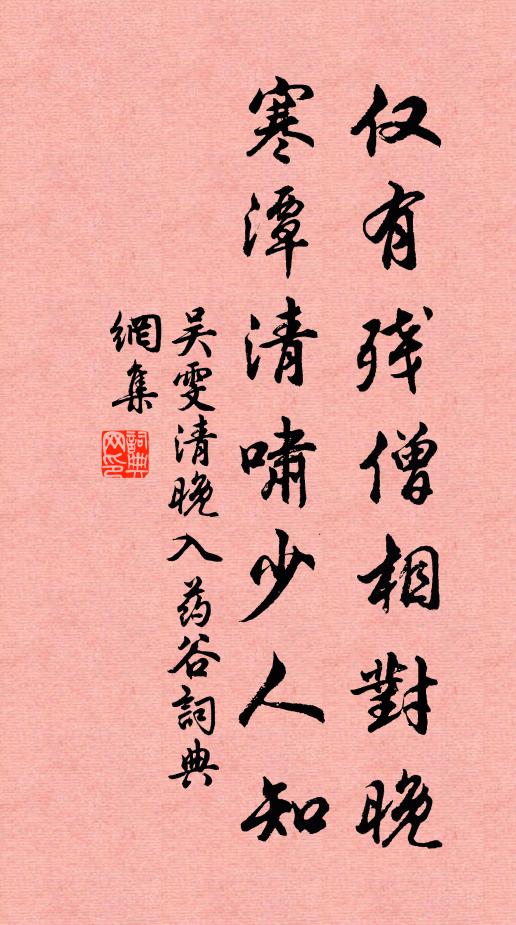 仅有残僧相對晚
寒潭清嘯少人知
吴雯清晚入药谷詞典
網集
詞典
网印